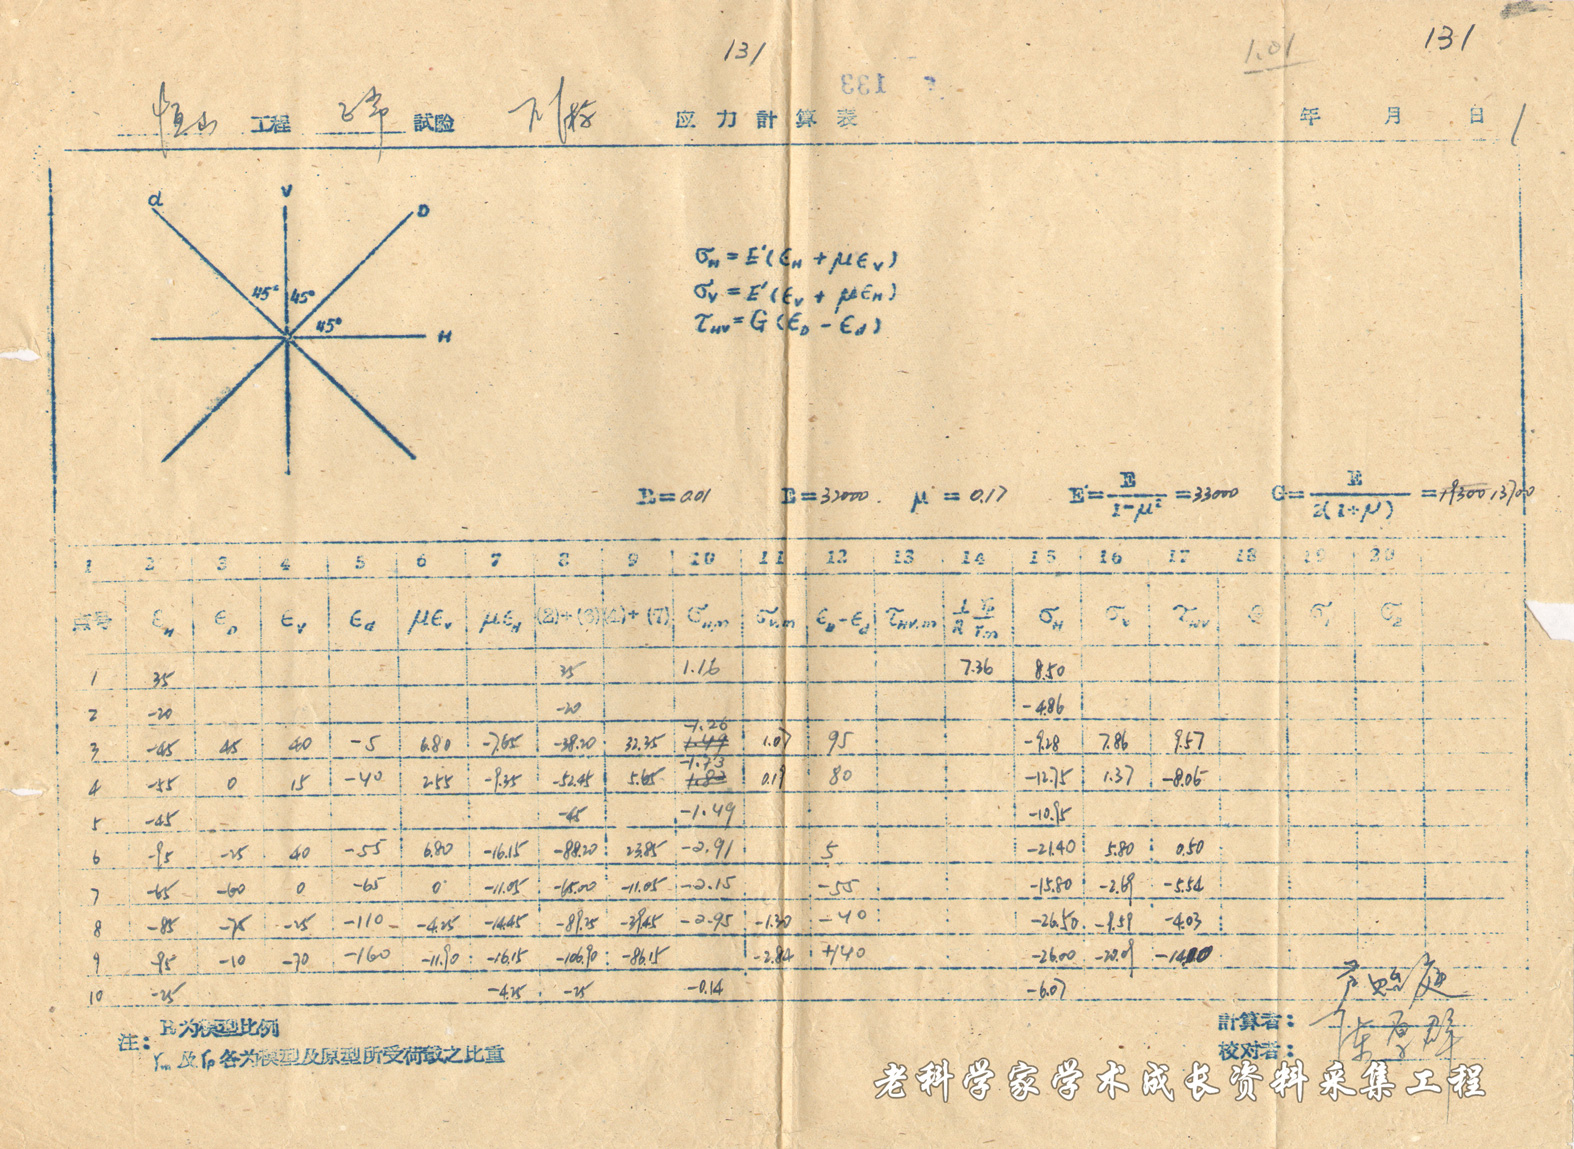 131
1.01
131
133
恒山 工程 正常 試験 下游 应力計算表 年 月 日 1
d V D
45° 45°
45° H
σH = E'(ϵH + μϵV)
σV = E'(ϵV + μϵH)
τHV = G(ϵD - ϵd)
R = 0.01 E = 32000 μ = 0.17 E' = E/(1-μ²) = 33000 G = E/(2(1+μ)) = 19300 13700
1 2 3 4 5 6 7 8 9 10 11 12 13 14 15 16 17 18 19 20
点号 ϵH ϵD ϵV ϵd μϵV μϵH (2)+(6) (4)+(7) σH,m σV,m ϵD-ϵd τHV,m σH σV τHV
1 35 35 1.16 7.36 8.50
2 -20 -20 -4.86
3 -45 45 40 -5 6.80 -7.65 -38.20 32.35 -1.26 1.49 1.07 95 -9.28 7.86 9.57
4 -55 0 15 -40 2.55 -9.35 -52.45 5.65 -1.73 1.83 0.19 80 -12.75 1.37 -8.06
5 -45 -45 -1.49 -10.95
6 -95 -25 40 -55 6.80 -16.15 -88.20 23.85 -2.91 5 -21.40 5.80 0.50
7 -65 -60 0 -65 0 -11.05 -65.00 -11.05 -2.15 -55 -15.80 -2.69 -5.54
8 -85 -75 -25 -110 -4.25 -14.45 -89.25 -39.45 -2.95 -1.30 -40 -26.50 -9.59 -4.03
9 -95 -10 -70 -160 -11.90 -16.15 -106.90 -86.15 -2.84 +140 -26.00 -20.09 -14.10
10 -25 -4.25 -25 -0.14 -6.07
注: R为模型比例
rm 及 rp 各为模型及原型所受荷载之比重
計算者:
校对者: 陈厚群
老科学家学术成长资料采集工程